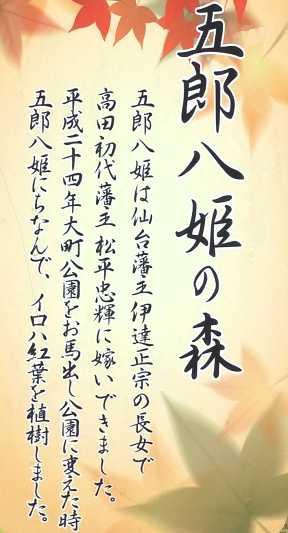 五郎八姫の森
五郎八姫は仙台藩主伊達正宗の長女で
高田初代藩主松平忠輝に嫁いできました。
平成二十四年大町公園をお馬出し公園に変えた時
五郎八姫にちなんで、イロハ紅葉を植樹しました。